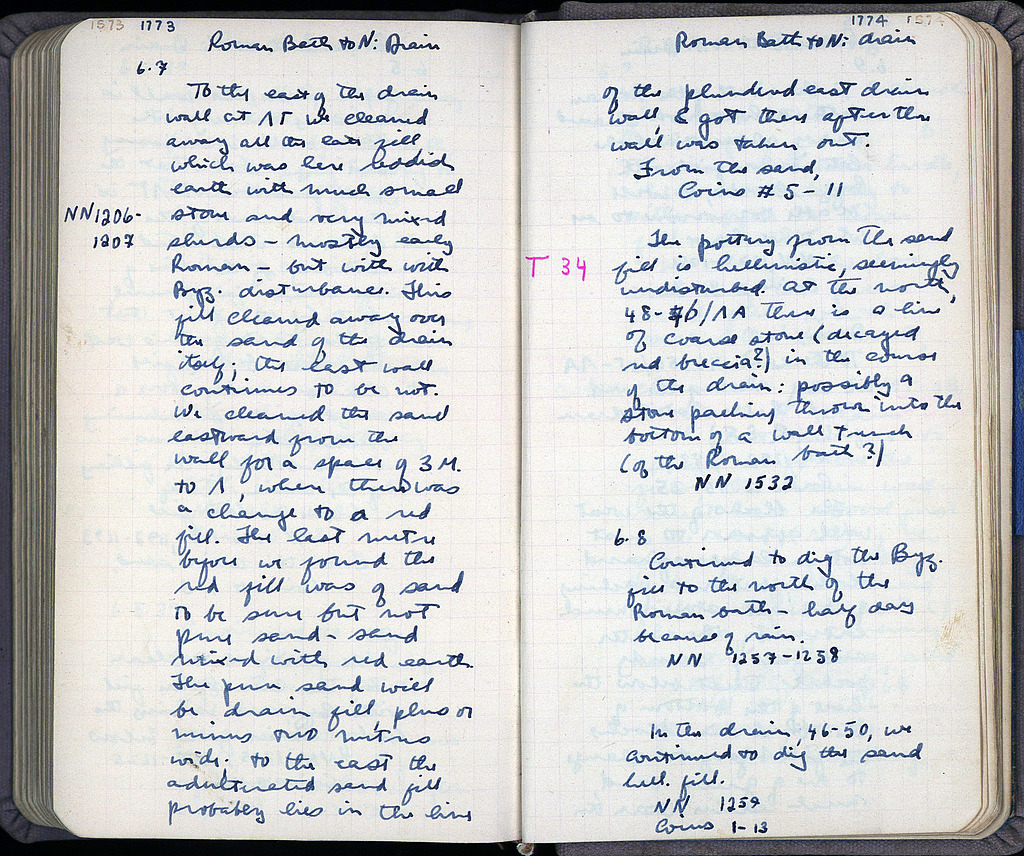 1573 1773
Roman Bath to N: Drain
6.7
To the east of the drain
wall at ΛΓ we cleared
away all the late fill
which was here reddish
earth with much small
NN1206- stone and very mixed
1207 sherds – mostly early
Roman – but with with
Byz. disturbance. This
fill cleared away over
the sand of the drain
itself; the east wall
continues to be not.
We cleaned the sand
eastward from the
wall for a space of 3 M.
to Λ, where there was
a change to a red
fill. The last metre
before we found the
red fill was of sand
to be sure but not
pure sand – sand
mixed with red earth.
The pure sand will
be drain fill, plus or
minus two metres
wide; to the east the
adulterated sand fill
probably lies in the line
1774 1574
Roman Bath to N: drain
of the plundered east drain
wall, & got there after the
wall was taken out.
From the sand,
Coins # 5 - 11
The pottery from the sand
T 34 fill is hellenistic, seemingly
undisturbed. At the north,
48-/ΛΑ there is a line
of coarse stone (decayed
red breccia?) in the course
of the drain: possibly a
stone packing thrown into the
bottom of a wall trench
(of the Roman bath?)
NN 1532
6.8
Continued to dig the Byz.
fill to the north of the
Roman bath – half day
because of rain.
NN 1257-1258
In the drain, 46-50, we
continued to dig the sand
hell. fill.
NN 1259
Coins 1-13